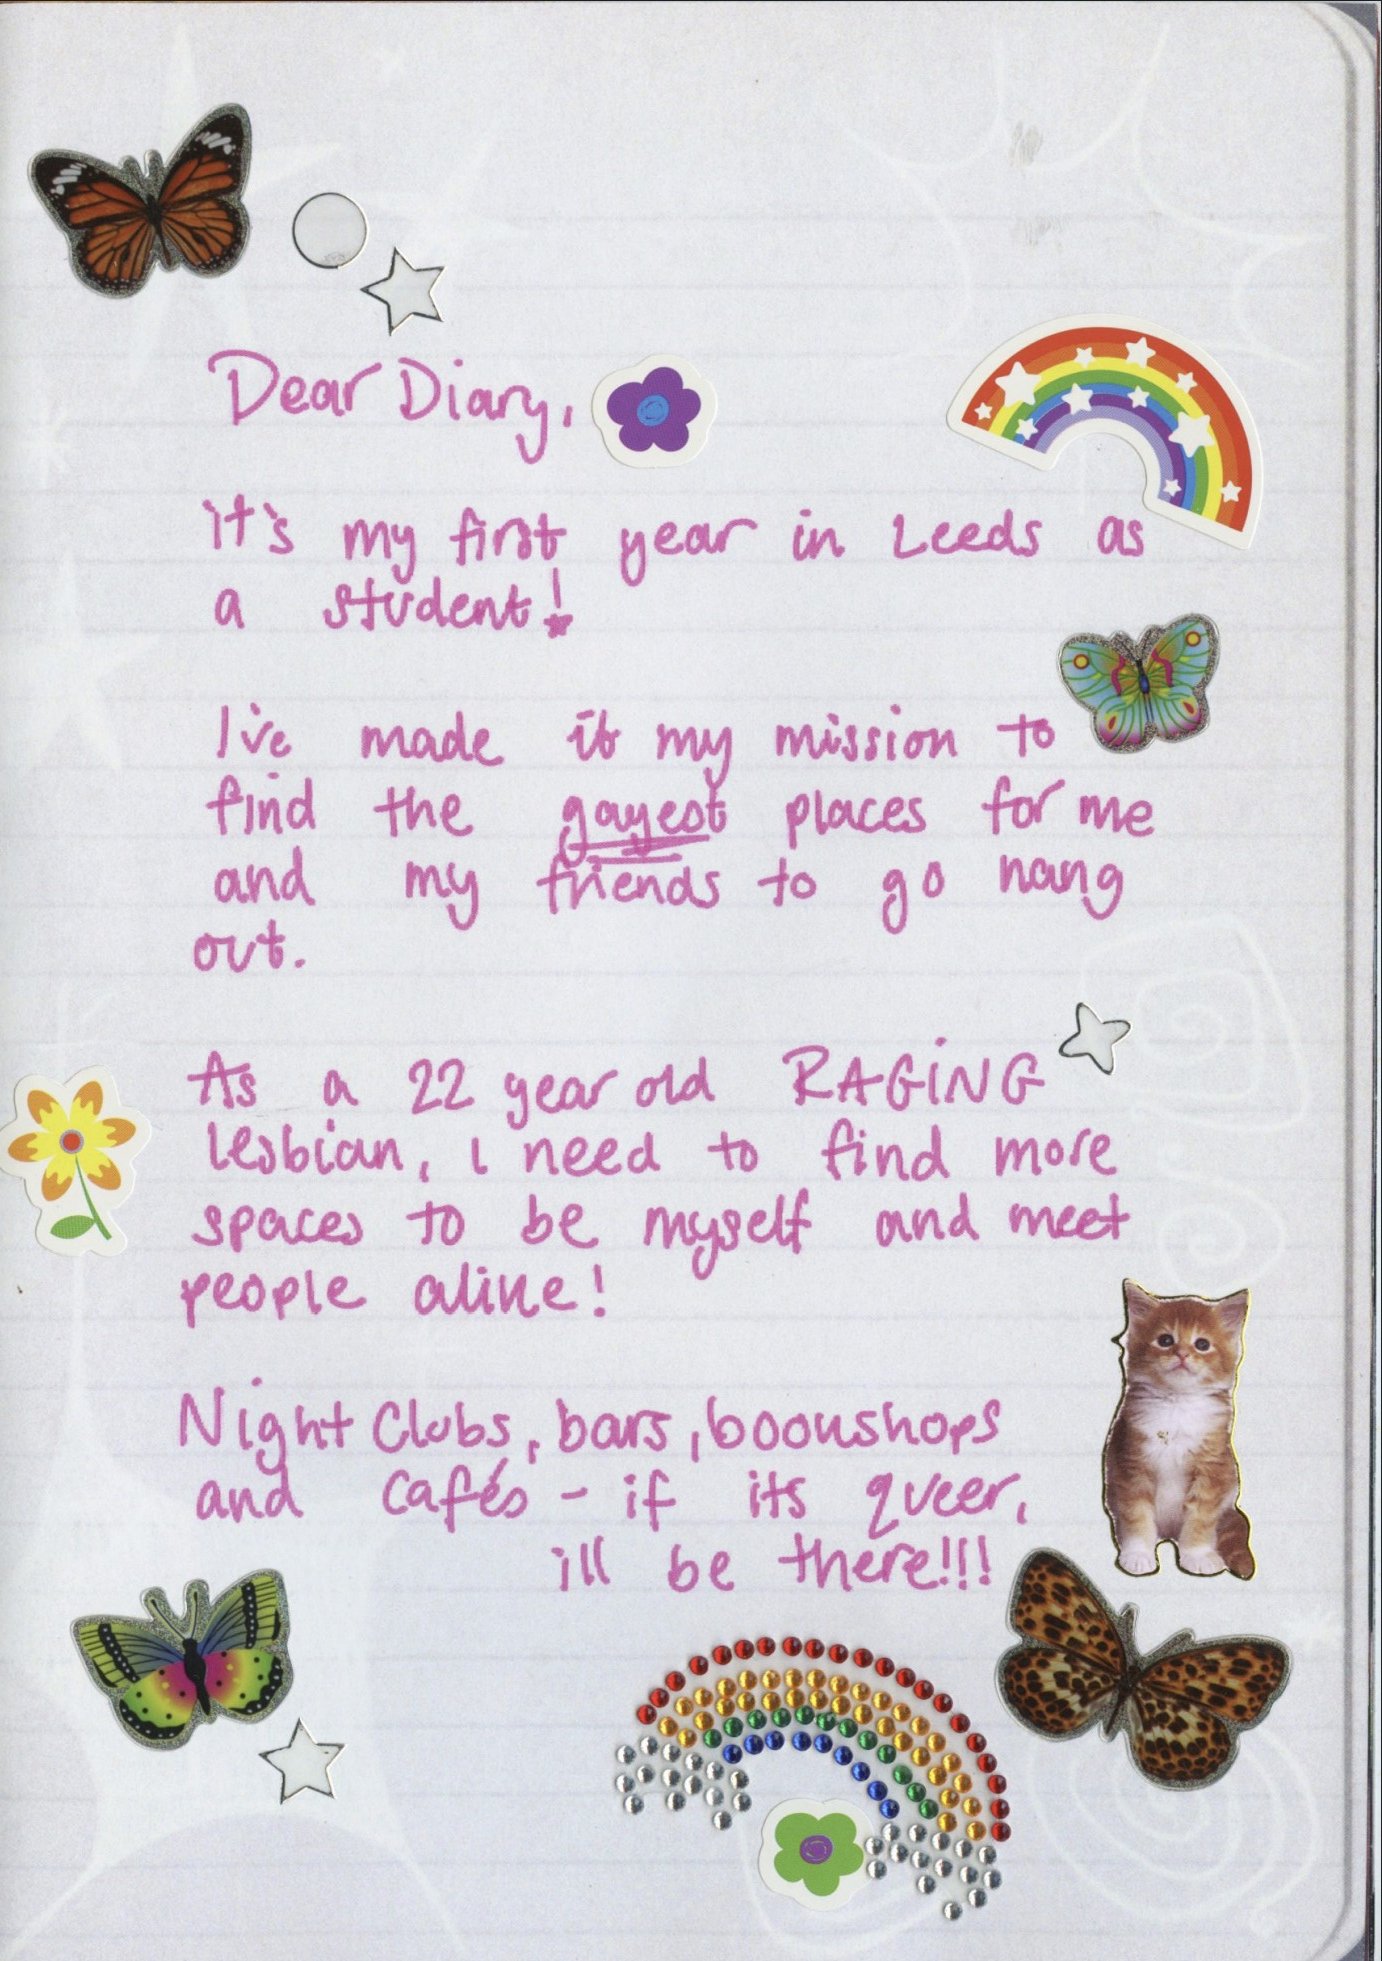 Dear Diary,
it's my first year in Leeds as
a student!
I've made it my mission to
find the gayest places for me
and my friends to go hang
out.
As a 22 year old RAGING
lesbian, i need to find more
spaces to be myself and meet
people alike!
Night Clubs, bars, bookshops
and cafés - if its queer,
ill be there!!!